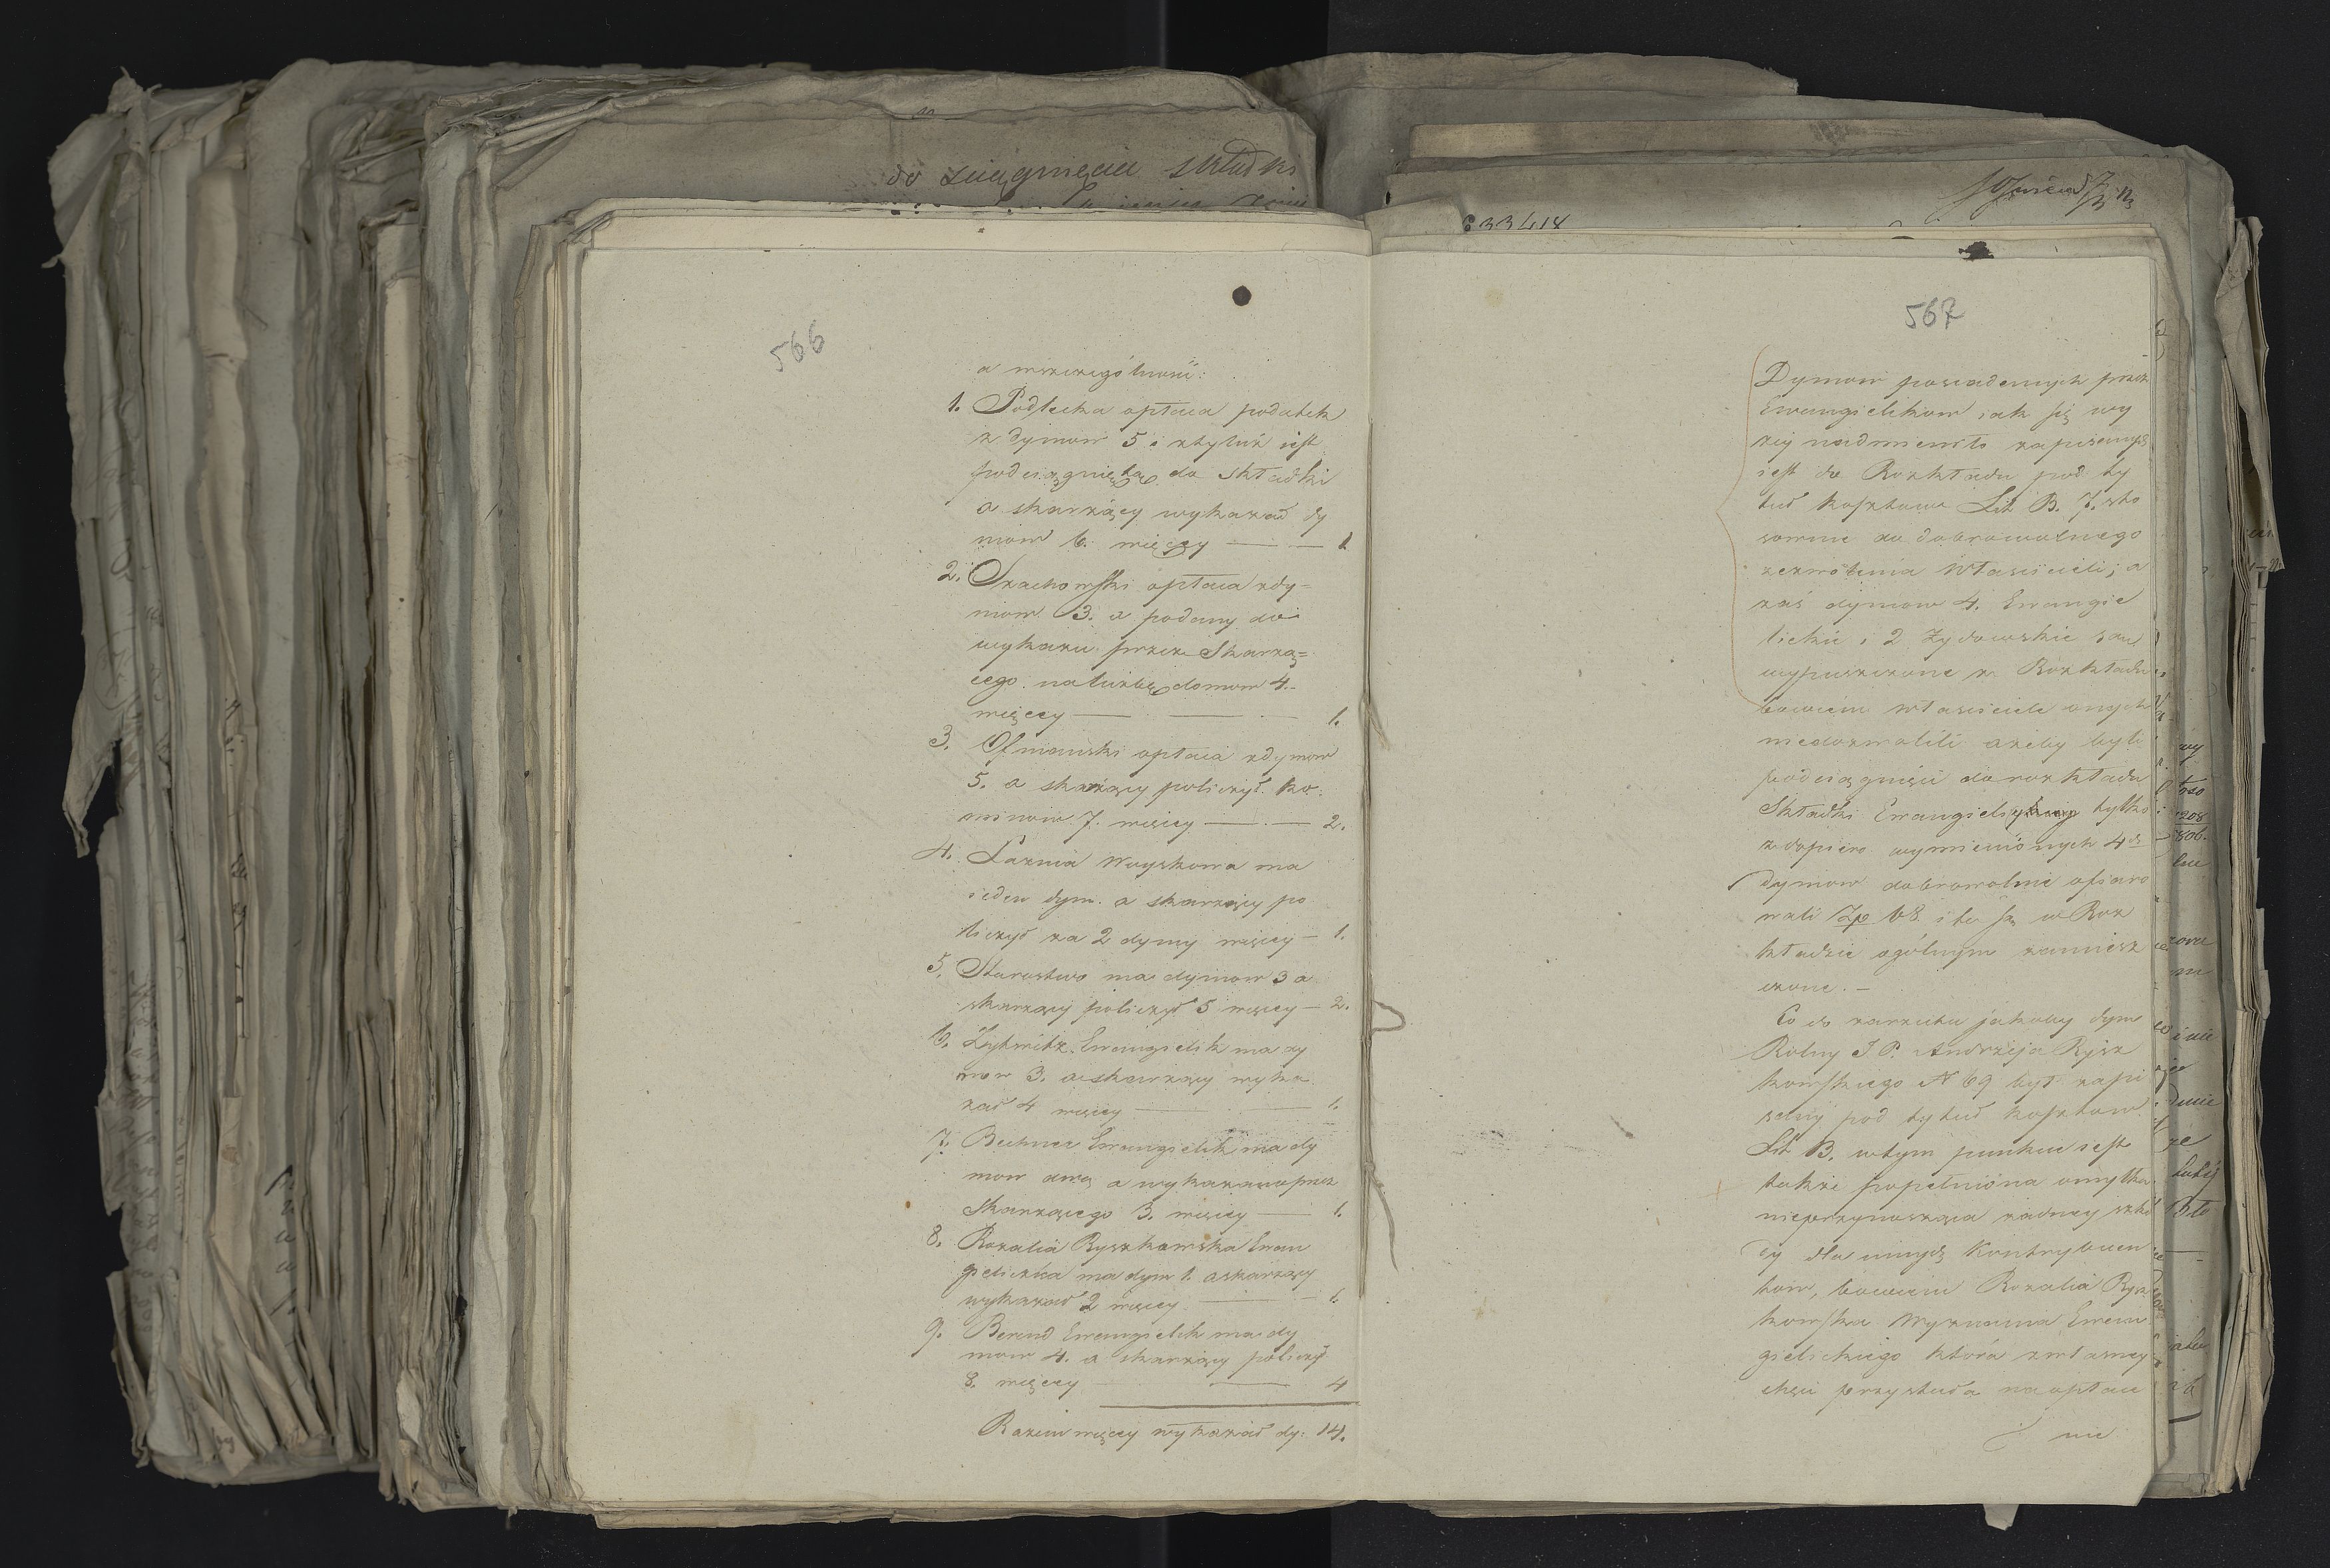 do sciągnięcia składki
33418
566
a wszczególności:
1. Podlecka opłaca podatek
z dymow 5 i ztyluż iest
podciągniętą do składki
a skarżący wykazał dy
mow 6. więcey — 1
2. Szachowski opłaca zdy-
mow 3. a podany do
wykazu przez Skarżą=
cego naliczbę domow 4.
więcey — 1.
3. Ofmański opłaca zdymow
5. a skarżący policzył ko-
minow 7. więcey — 2.
4. Łaznia Woyskowa ma
ieden dym. a skarżący po
liczył za 2 dymy więcey — 1.
5. Starostwo ma dymow 3 a
skarżący policzył 5 więcey — 2.
6. Ewangielik ma dy
mow 3. a skarżący wyka
zał 4 więcey — 1.
7. Buchner Ewangielik ma dy
mow dwa a wykazano przez
Skarżącego 3. więcey — 1.
8. Rozalia Ryszkowska Ewan
gieliczka ma dym 1. a skarżący
wykazał 2 więcey — 1.
9. Berend Ewangielik ma dy
mow 4. a skarżący policzył
8. więcey — 4
Razem więcey wykazał dy: 14.
567
Dymow posiadanych przez
Ewangielikow iak się wy
żey nadmieniło zapisanych
iest do Rozkładu pod ty
tuł kosztowe Lit B. 7. sto
sownie do dobrowolnego
zezwolenia Właścicieli; a
zaś dymow 4. Ewangie
lickie i 2 Żydowskie są
wypuszczone z Rozkładu
bowiem właściciele onych
niedozwolili azeby byli
podciągnięci do rozkładu
Składki Ewangielickiey tylko
z dopiero wymienionych 4ch
dymow dobrowolnie ofiaro
wali Zp 68 i te są w Roz
kładzie ogólnym zamiesz
czone. —
Co do zarzutu jakoby dym
Rolny J P. Andrzeja Rysz
kowskiego N 69 był zapi
sany pod tytuł kosztow
Lit B. w tym punkcie iest
także popełniona omyłka
nieprzynosząca żadney szko
dy dla innych Kontrybuen
tow, bowiem Rozalia Rysz
kowska Wyznania Ewan
gielickiego która zwłasney
chęci przystała na opłace
nie